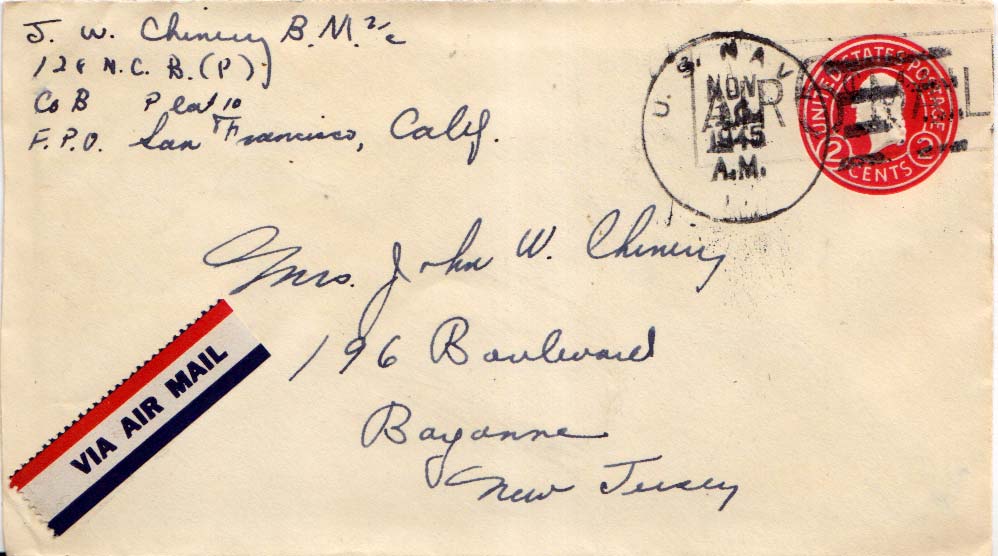 J. W. Chinery B.M. 2/c
128 N.C.B. (P)
Co B Plat 10
F.P.O. San Francisco, Calif.
U. S. NAVY
NOV
1945
A.M.
AIR MAIL
UNITED STATES POSTAGE
2 CENTS 2
Mrs. John W. Chinery
196 Boulevard
Bayonne
New Jersey
VIA AIR MAIL